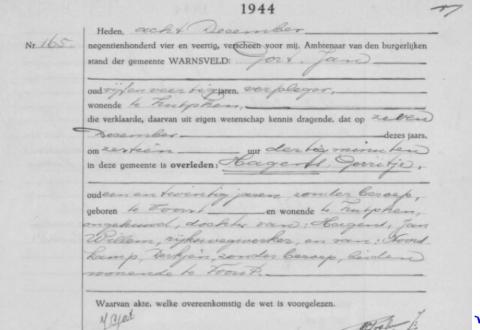 1944
Heden, acht December
Nr. 165. negentienhonderd vier en veertig, verscheen voor mij, Ambtenaar van den burgerlijken
stand der gemeente WARNSVELD: Jan
oud vijfenveertig jaren, verpleger,
wonende te Zutphen,
die verklaarde, daarvan uit eigen wetenschap kennis dragende, dat op zeven
December dezes jaars,
om zestien uur dertig minuten
in deze gemeente is overleden: Gerritje,
oud eenentwintig jaren, zonder beroep,
geboren te Voorst en wonende te Zutphen,
ongehuwd, dochter van: Jan
Willem, rijkswegwerker, en van:
kamp, zonder beroep, beiden
wonende te Voorst.
Waarvan akte, welke overeenkomstig de wet is voorgelezen.